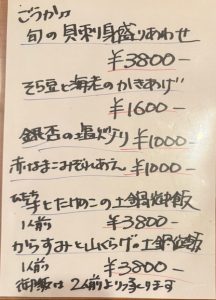 旬の貝刺身盛りあわせ
¥3800-
そら豆と海老のかきあげ
¥1600-
銀杏の塩ゆり ¥1000-
赤なまこみぞれあえ ¥1000-
とたけのこの土鍋御飯
1人前 ¥3800-
からすみと山くらげの土鍋御飯
1人前 ¥3800-
御飯は2人前より承ります